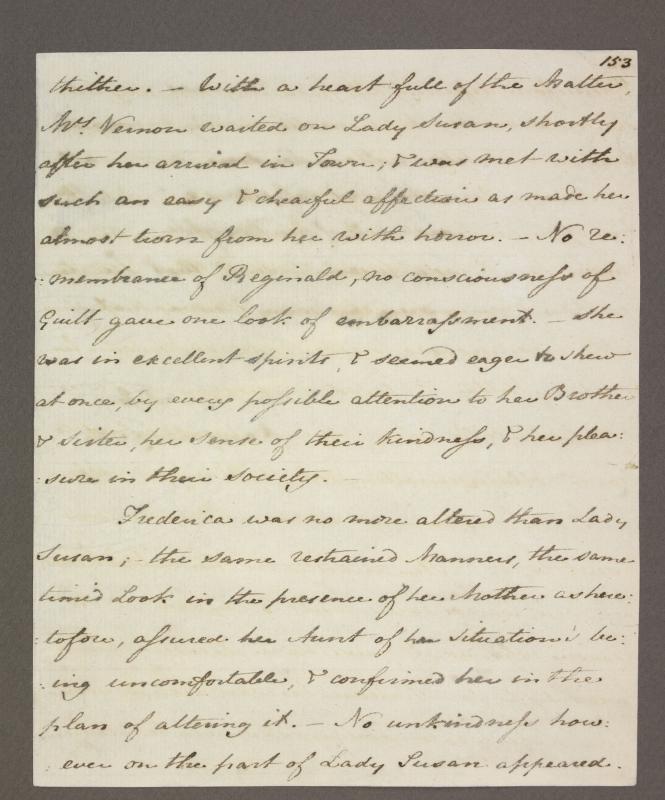 153
thither. – With a heart full of the Matter,
Mrs Vernon waited on Lady Susan, shortly
after her arrival in Town; & was met with
such an easy & chearful affection as made her
almost turn from her with horror. – No re:
:membrance of Reginald, no consciousness of
Guilt gave one look of embarrassment. – She
was in excellent spirits, & seemed eager to shew
at once, by every possible attention to her Brother
& Sister, her sense of their kindness, & her plea:
:sure in their society. –
Frederica was no more altered than Lady
Susan; – the same restrained Manners, the same
timid Look in the presence of her Mother as here:
:tofore, assured her Aunt of her situation's be:
:ing uncomfortable, & confirmed her in the
plan of altering it. – No unkindness how:
:ever on the part of Lady Susan appeared.